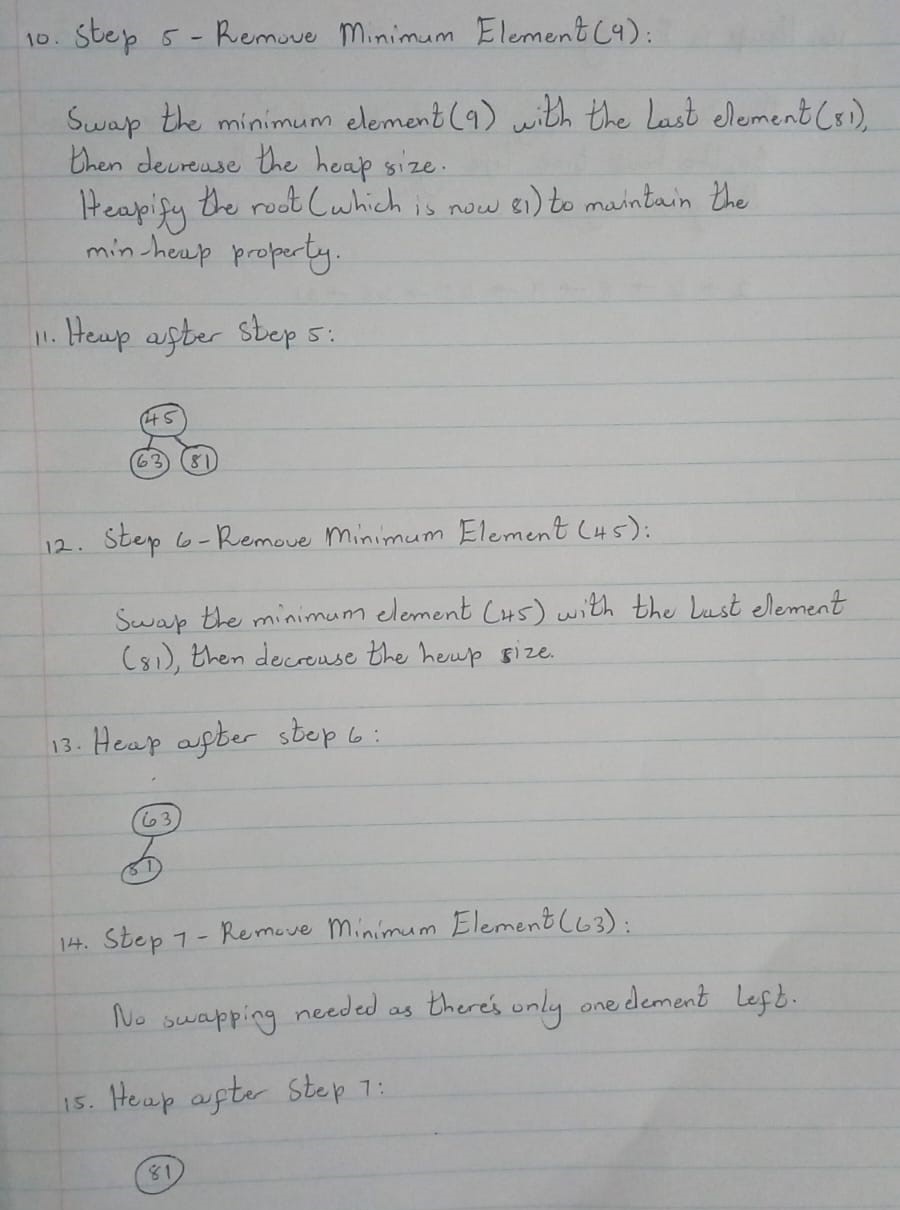 10. Step 5 - Remove Minimum Element (9):
Swap the minimum element (9) with the last element (81),
then decrease the heap size.
Heapify the root (which is now 81) to maintain the
min-heap property.
11. Heap after Step 5:
45
63 81
12. Step 6 - Remove Minimum Element (45):
Swap the minimum element (45) with the last element
(81), then decrease the heap size.
13. Heap after step 6:
63
81
14. Step 7 - Remove Minimum Element (63):
No swapping needed as there's only one element left.
15. Heap after Step 7:
81